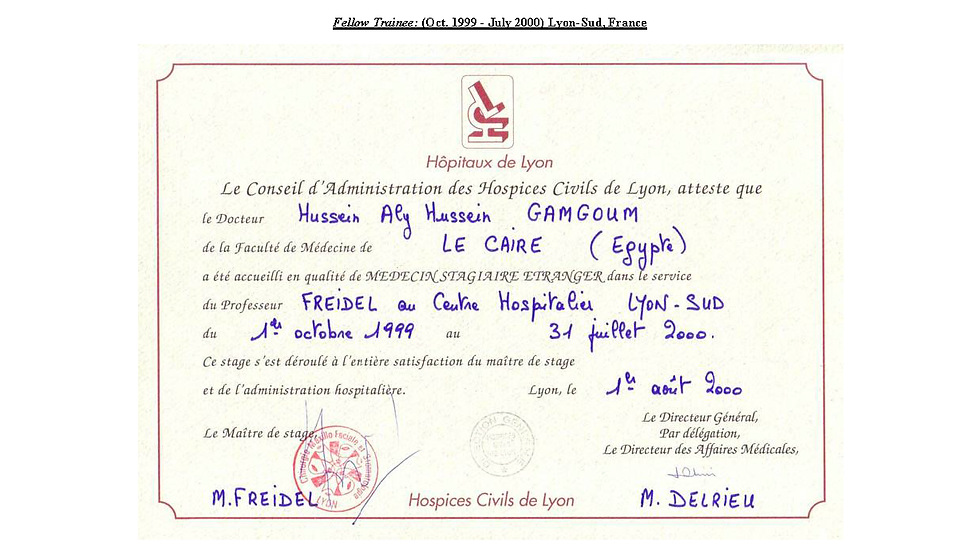 Fellow Trainee: (Oct. 1999 - July 2000) Lyon-Sud, France
Hôpitaux de Lyon
Le Conseil d'Administration des Hospices Civils de Lyon, atteste que
le Docteur Hussein Aly Hussein GAMGOUM
de la Faculté de Médecine de LE CAIRE (Egypte)
a été accueilli en qualité de MEDECIN STAGIAIRE ETRANGER dans le service
du Professeur FREIDEL au Centre Hospitalier LYON-SUD
du 1er octobre 1999 au 31 juillet 2000.
Ce stage s'est déroulé à l'entière satisfaction du maître de stage
et de l'administration hospitalière. Lyon, le 1er août 2000
Le Directeur Général,
Par délégation,
Le Directeur des Affaires Médicales,
Le Maître de stage,
Chirurgie Maxillo Faciale et Stomatologie
LYON
M. FREIDEL
Hospices Civils de Lyon
M. DELRIEU